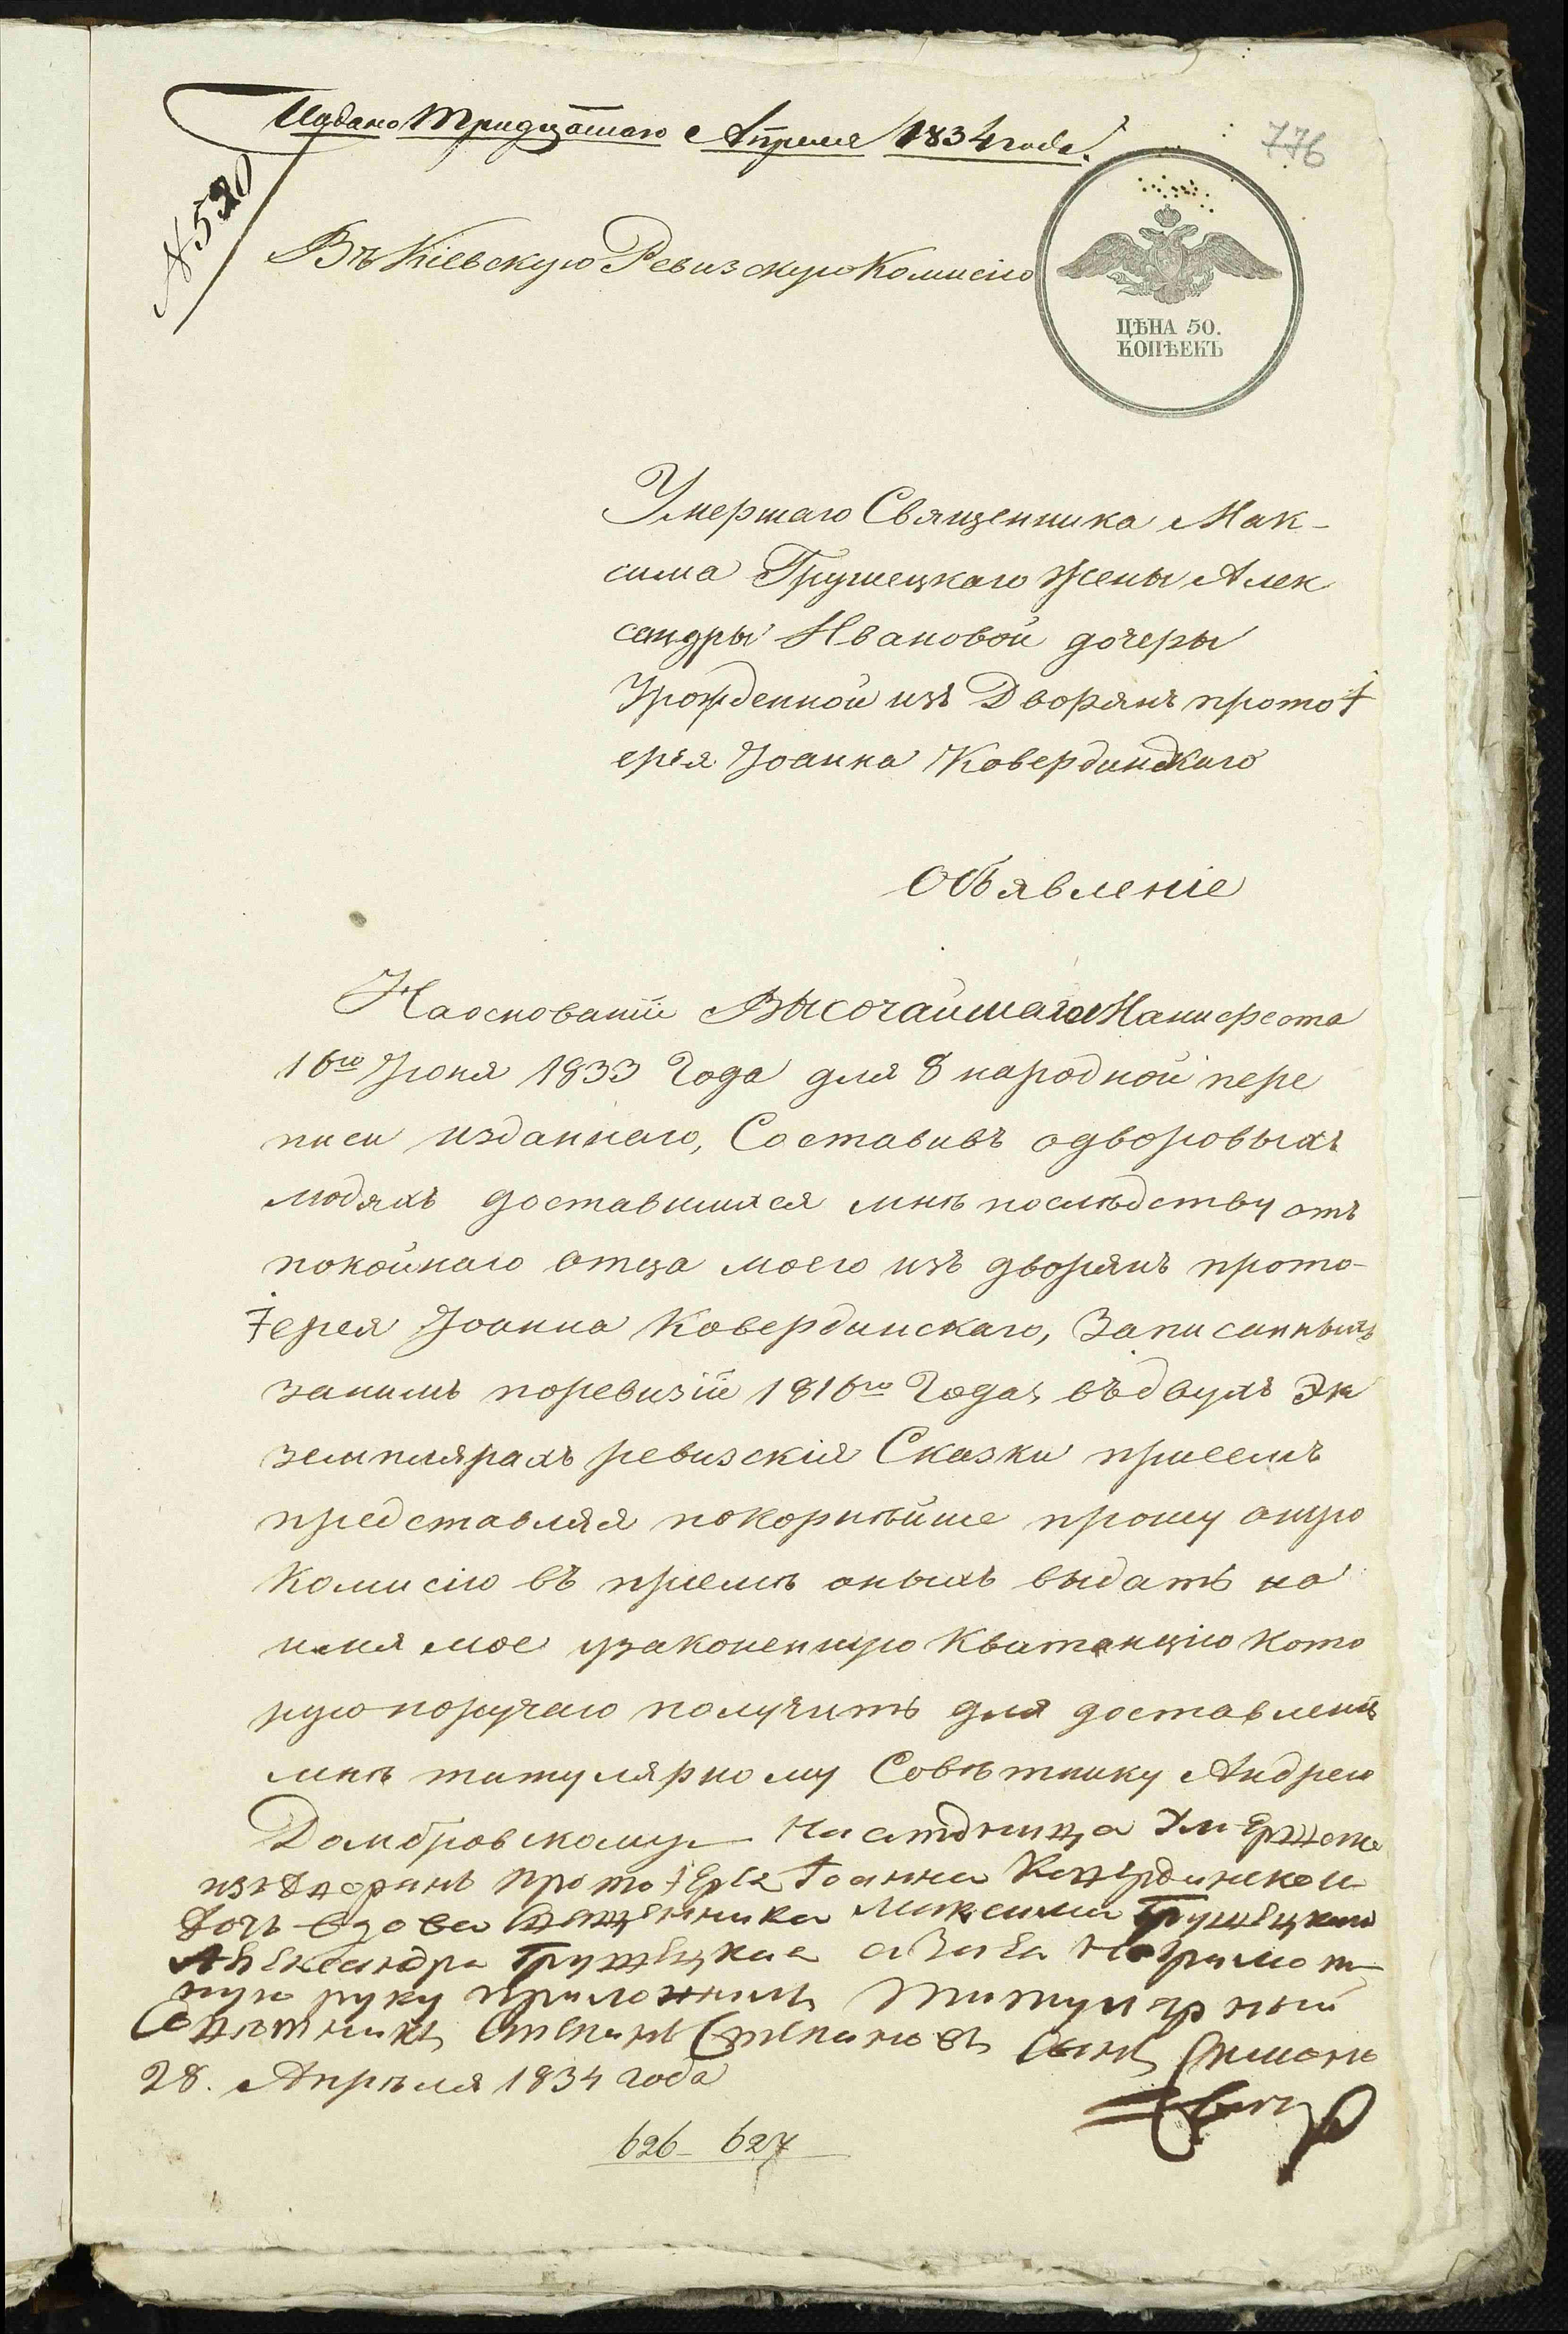 Подано Тридцатаго Апреля 1834 года.
776
№ 520
Въ Кіевскую Ревизскую Комисію
ЦѢНА 50.
КОПѢЕКЪ
Умершаго Священника Мак-
сима Грушецкаго жены Алек
сандры Ивановой дочеры
Урожденной изъ Дворянъ прото І
ерея Іоанна Ковердинскаго
Объявленіе
На основаніи Высочайшаго Манифеста
16го Іюня 1833 Года для 8 народной пере
писи изданнаго, Составивъ о дворовыхъ
людяхъ доставшихся мнѣ по слѣдству отъ
покойнаго отца моего изъ дворянъ прото-
іерея Іоанна Ковердинскаго, Записанныхъ
за нимъ по ревизіи 1816го Года, въ двухъ Эк
земплярахъ ревизскія Сказки при семъ
представляя покорнѣйше прошу оную
Комисію въ приемѣ оныхъ выдать на
имя мое узаконенную Квитанцію кото
рую поручаю получить для доставленія
мнѣ титулярному Совѣтнику Андрею
Домбровскому Наслѣдница Умершаго
изъ Дворянъ протоіерея Іоанна Ковердинскаго
дочь вдова священника Максима Грушецкаго
Александра Грушецкая а За Ея Неграмот
ную руку приложилъ Титулярный
Совѣтникъ Степанъ Степановъ Сынъ
28. Апрѣля 1834 года
626 - 627